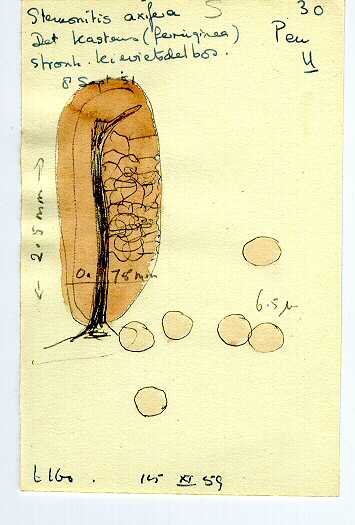 Stemonitis axifera S 30
Det Kastens (ferruginea) Pen
Stronk. Kievietsdelbos. U
8 Sept '51
2.5 mm
0. 78 mm
6.5 µ
145 XI 59